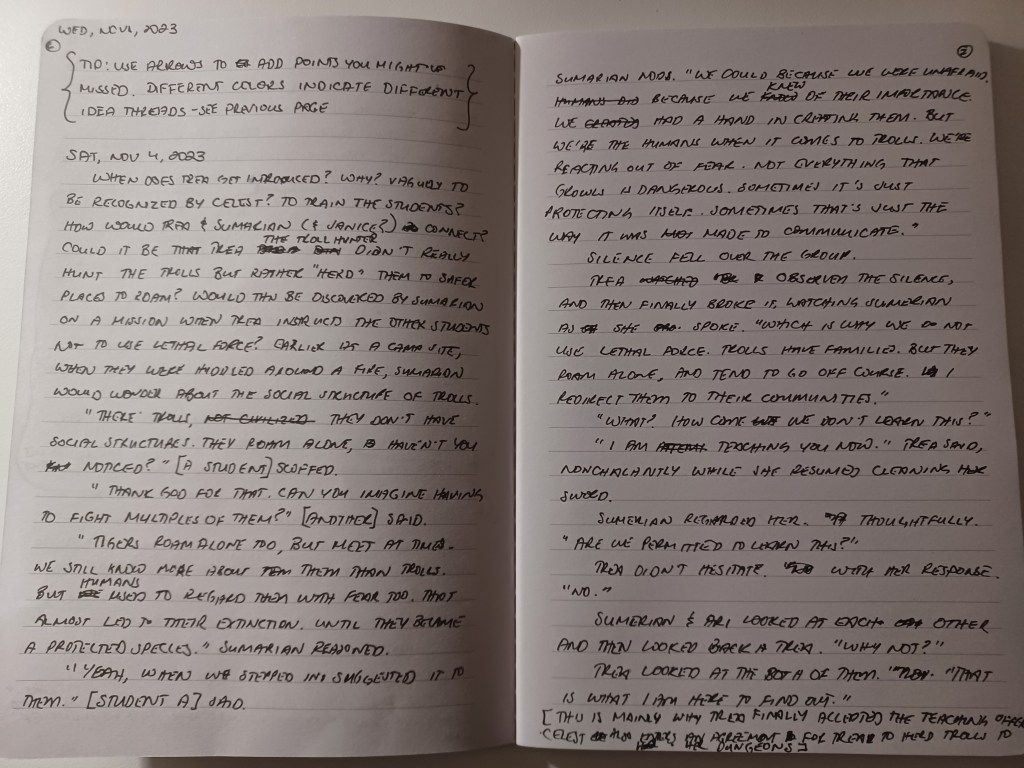 WED, NOV 1, 2023
TIP: USE ARROWS TO ADD POINTS YOU MIGHT'VE
MISSED. DIFFERENT COLORS INDICATE DIFFERENT
IDEA THREADS - SEE PREVIOUS PAGE
SAT, NOV 4, 2023
WHEN DOES TREA GET INTRODUCED? WHY? VAGUELY TO
BE RECOGNIZED BY CELEST? TO TRAIN THE STUDENTS?
HOW WOULD TREA & SUMARIAN (& JANICE?) CONNECT?
THE TROLL HUNTER
COULD IT BE THAT TREA DIDN'T REALLY
HUNT THE TROLLS BUT RATHER "HERD" THEM TO SAFER
PLACES TO ROAM? WOULD THIS BE DISCOVERED BY SUMARIAN
ON A MISSION WHEN TREA INSTRUCTS THE OTHER STUDENTS
NOT TO USE LETHAL FORCE? EARLIER AT A CAMP SITE,
WHEN THEY WERE HUDDLED AROUND A FIRE, SUMARION
WOULD WONDER ABOUT THE SOCIAL STRUCTURE OF TROLLS.
"THERE TROLLS, NOT CIVILIZED THEY DON'T HAVE
SOCIAL STRUCTURES. THEY ROAM ALONE, HAVEN'T YOU
NOTICED?" [A STUDENT] SCOFFED.
"THANK GOD FOR THAT. CAN YOU IMAGINE HAVING
TO FIGHT MULTIPLES OF THEM?" [ANOTHER] SAID.
"TIGERS ROAM ALONE TOO, BUT MEET AT TIMES.
WE STILL KNOW MORE ABOUT THEM THAN TROLLS.
HUMANS
BUT USED TO REGARD THEM WITH FEAR TOO. THAT
ALMOST LED TO THEIR EXTINCTION. UNTIL THEY BECAME
A PROTECTED SPECIES." SUMARIAN REASONED.
"YEAH, WHEN WE STEPPED IN & SUGGESTED IT TO
THEM." [STUDENT A] SAID.
2
SUMARIAN NODS. "WE COULD BECAUSE WE WERE UNAFRAID.
KNEW
HUMANS DID BECAUSE WE OF THEIR IMPORTANCE.
WE CREATED HAD A HAND IN CRATING THEM. BUT
WE'RE THE HUMANS WHEN IT COMES TO TROLLS. WE'RE
REACTING OUT OF FEAR. NOT EVERYTHING THAT
GROWLS IS DANGEROUS. SOMETIMES IT'S JUST
PROTECTING ITSELF. SOMETIMES THAT'S JUST THE
WAY IT WAS MADE TO COMMUNICATE."
SILENCE FELL OVER THE GROUP.
TREA WATCHED OBSERVED THE SILENCE,
AND THEN FINALLY BROKE IT, WATCHING SUMERIAN
AS SHE SPOKE. "WHICH IS WHY WE DO NOT
USE LETHAL FORCE. TROLLS HAVE FAMILIES. BUT THEY
ROAM ALONE, AND TEND TO GO OFF COURSE. I
REDIRECT THEM TO THEIR COMMUNITIES."
"WHAT? HOW COME WE DON'T LEARN THIS?"
"I AM TEACHING YOU NOW." TREA SAID,
NONCHALANTLY WHILE SHE RESUMED CLEANING HER
SWORD.
SUMERIAN REGARDED HER. THOUGHTFULLY.
"ARE WE PERMITTED TO LEARN THIS?"
TREA DIDN'T HESITATE. WITH HER RESPONSE.
"NO."
SUMERIAN & ARI LOOKED AT EACH OTHER
AND THEN LOOKED BACK A TREA. "WHY NOT?"
TREA LOOKED AT THE BOTH OF THEM. "THAT
IS WHAT I AM HERE TO FIND OUT."
[THIS IS MAINLY WHY TREA FINALLY ACCEPTED THE TEACHING OFFER
CELEST ALSO AN AGREEMENT FOR TREA TO HERD TROLLS TO
HER DUNGEONS]